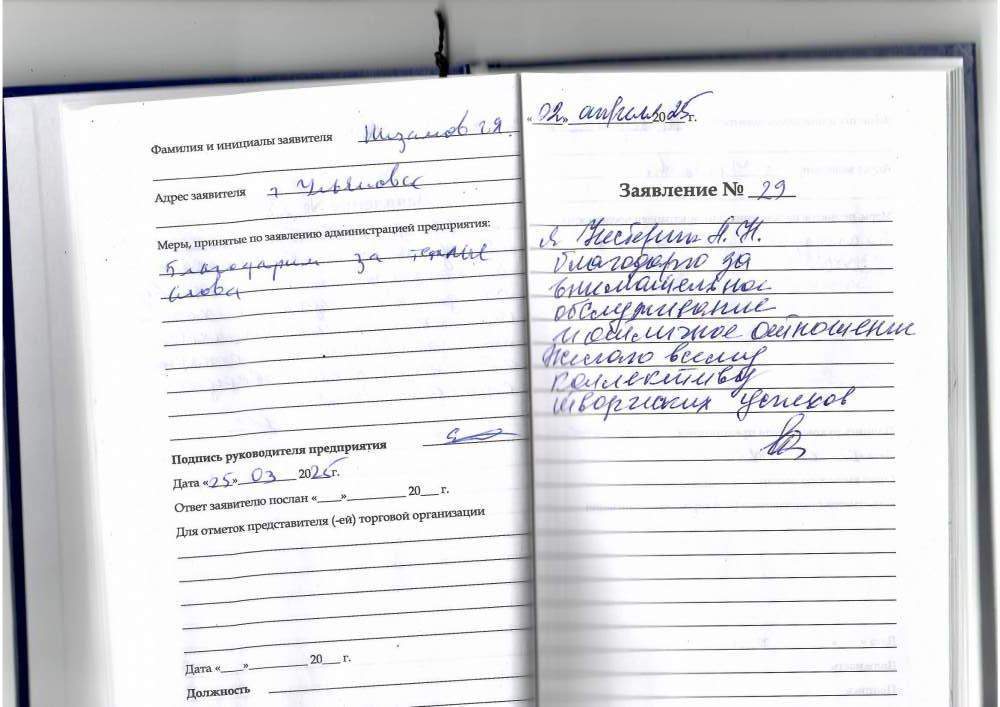 Фамилия и инициалы заявителя Низамов Г.Я.
Адрес заявителя г Ульяновск
Меры, принятые по заявлению администрацией предприятия:
Благодарим за теплые
слова
Подпись руководителя предприятия
Дата «25» 03 2025г.
Ответ заявителю послан «___»__________ 20___ г.
Для отметок представителя (-ей) торговой организации
Дата «___»__________ 20___ г.
Должность
«02» апреля 2025г.
Заявление № 29
Я Нестерин А. Н.
благодарю за
внимательное
обслуживание
и отношение
Желаю всему
коллективу
творческих успехов